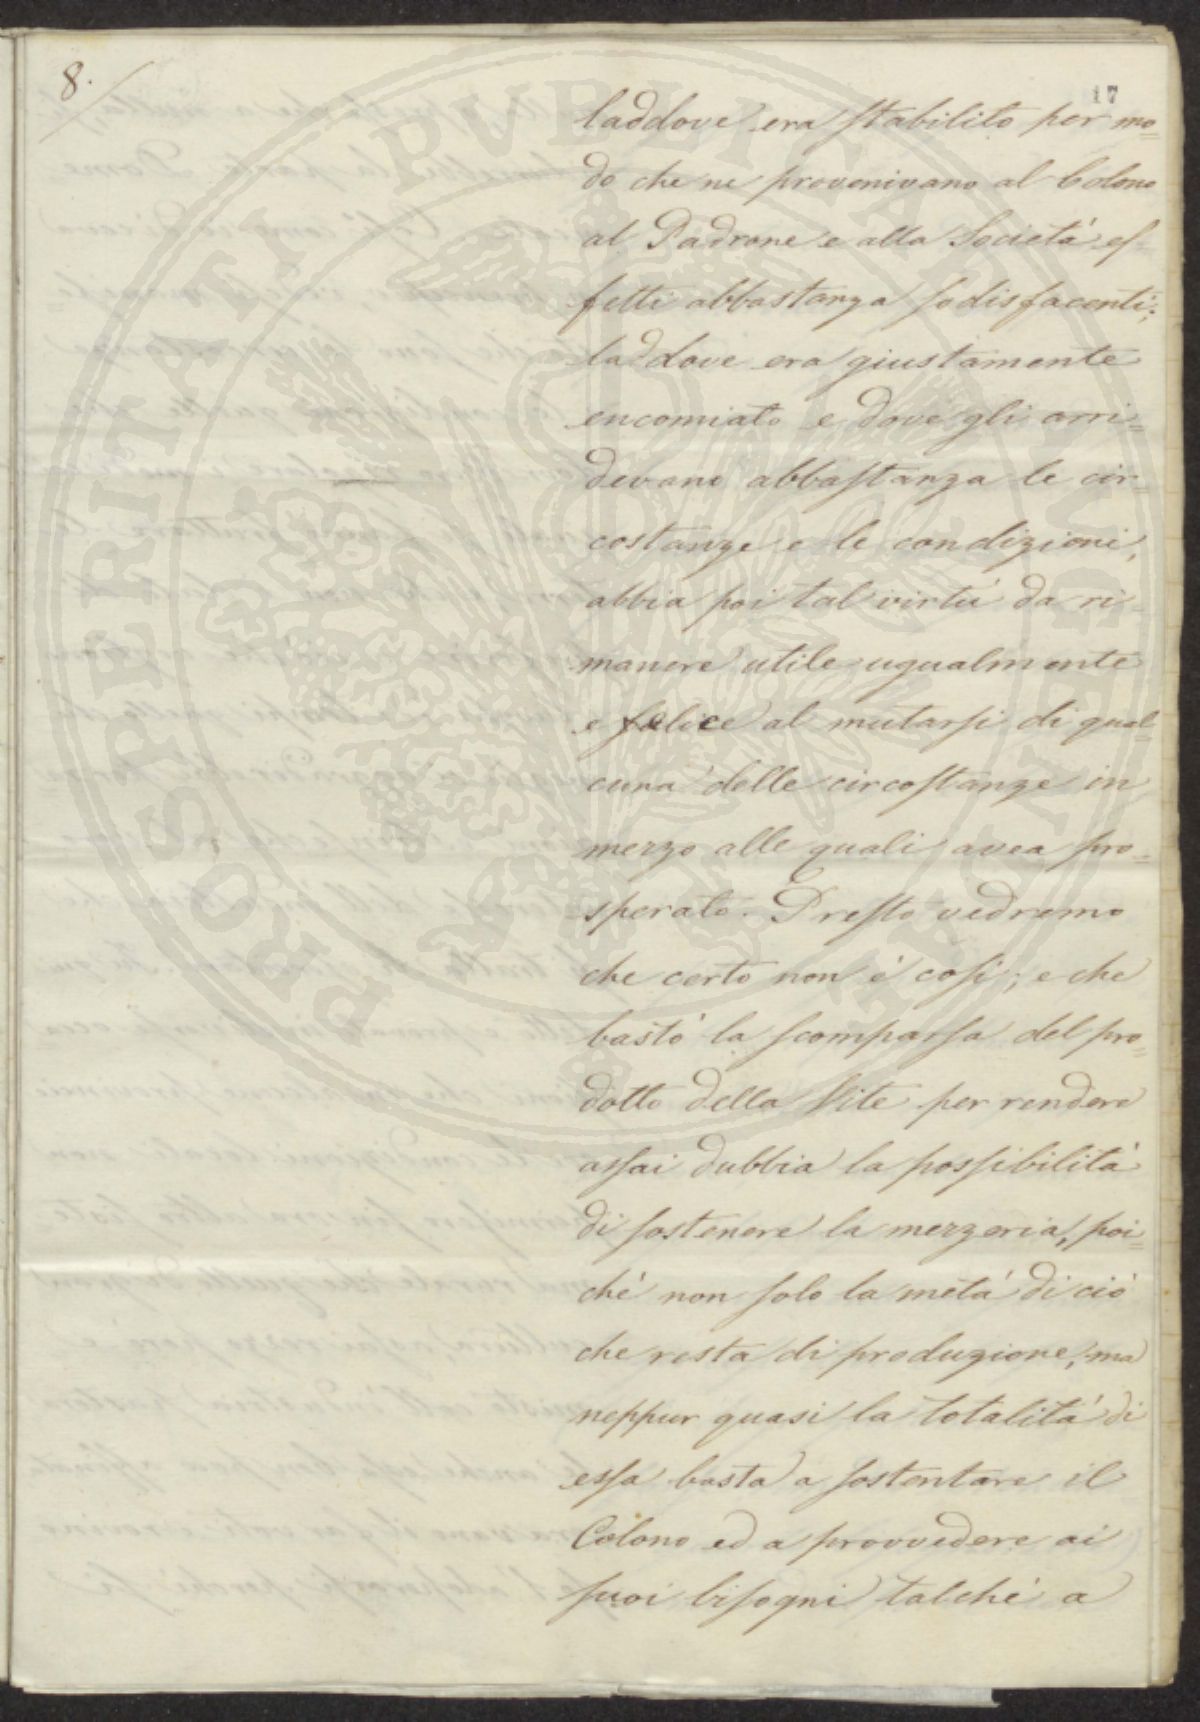 8.
17
laddove era stabilito per mo=
do che ne provenivano al Colono
al Padrone e alla Società ef=
fetti abbastanza sodisfacenti;
laddove era giustamente
encomiato e dove gli arri=
devano abbastanza le cir=
costanze e le condizioni,
abbia poi tal virtù da ri=
manere utile ugualmente
e felice al mutarsi di qual=
cuna delle circostanze in
mezzo alle quali avea pro=
sperato. Presto vedremo
che certo non è così; e che
bastò la scomparsa del pro=
dotto della Vite per rendere
assai dubbia la possibilità
di sostenere la mezzeria, poi=
chè non solo la metà di ciò
che resta di produzione, ma
neppur quasi la totalità di
essa basta a sostentare il
Colono ed a provvedere ai
suoi bisogni talchè a
PROSPERITATI PUBLICAE AUGENDAE